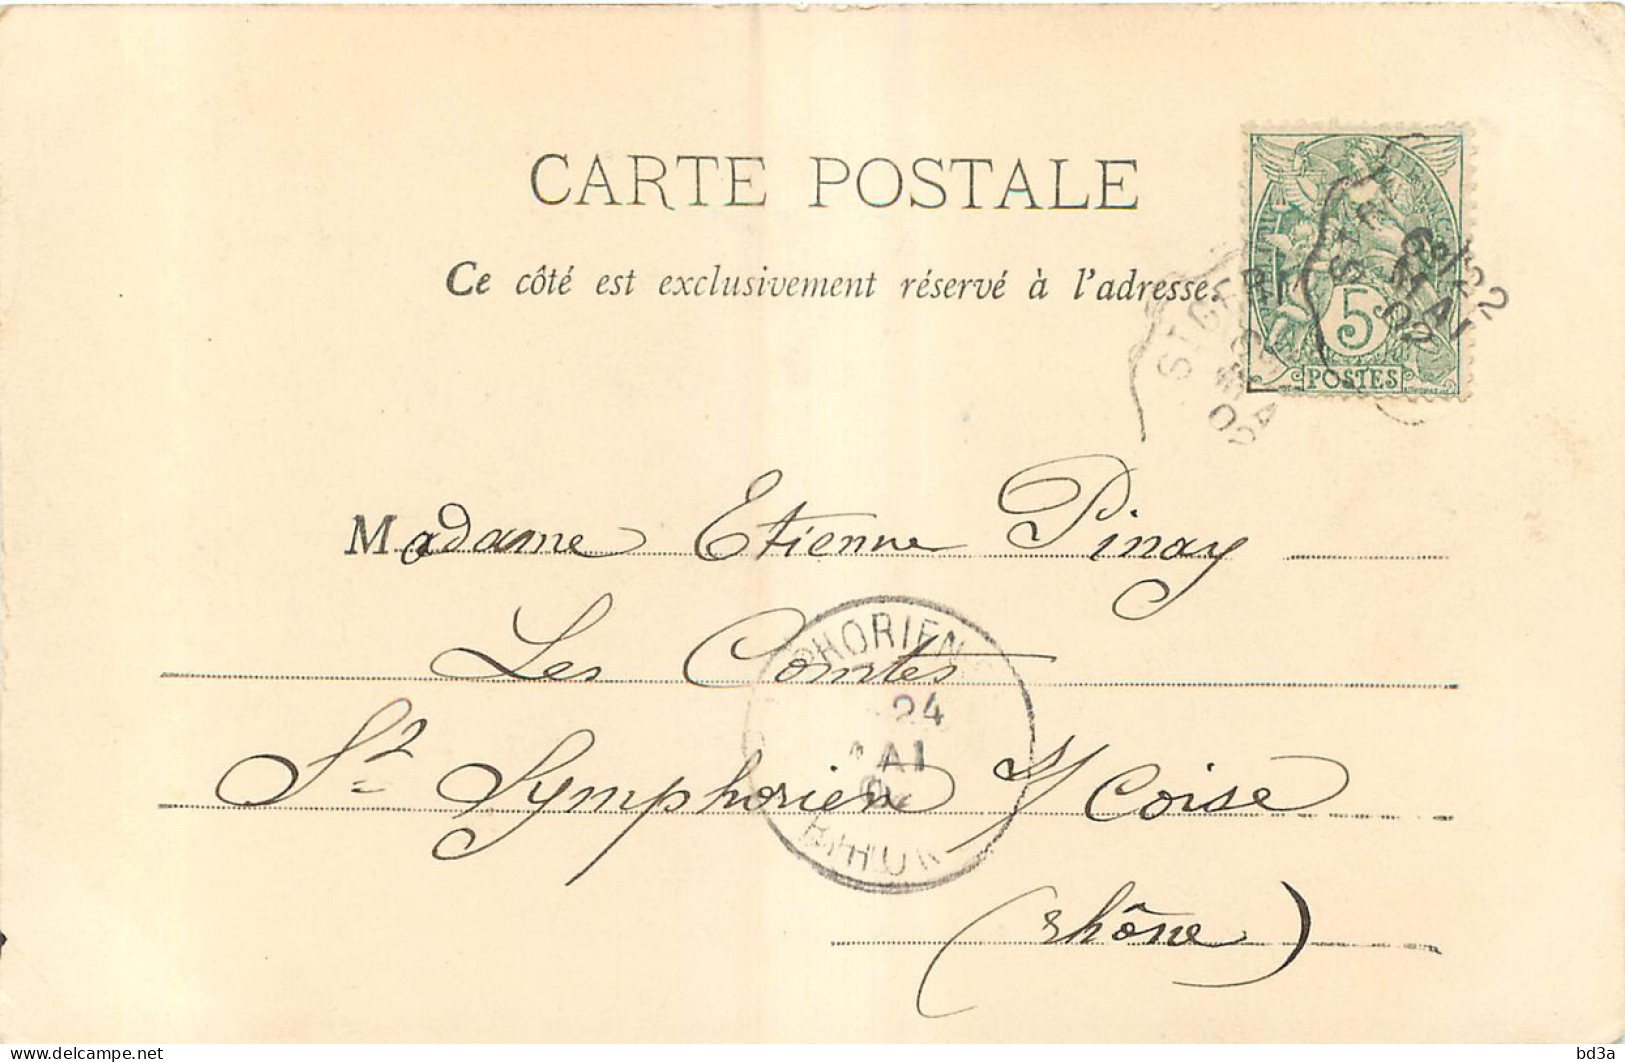 CARTE POSTALE
Ce côté est exclusivement réservé à l'adresse.
5
POSTES
22
MAI
02
Madame Etienne Pinay
Les Comtes
St Symphorien s/ Coise
(rhône)
PHORIEN
24
MAI
delcampe.net
bd3a